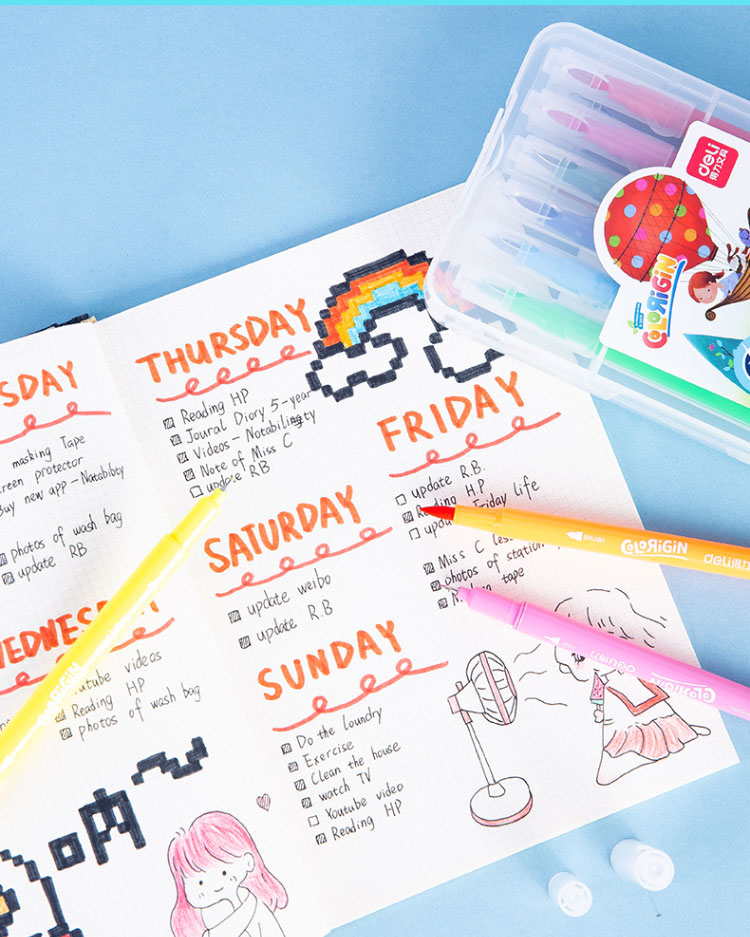 deli
得力文具
COLORIGIN
SDAY
masking Tape
screen protector
Buy new app - Natabibty
photos of wash bag
update RB
WEDNESDAY
Youtube videos
Reading HP
photos of wash bag
THURSDAY
Reading HP
Joural Diory 5-year
Videos - Notability
Note of Miss C
update RB
FRIDAY
update R.B.
Reading H.P
update Friday life
Miss C
photos of station
tape
SATURDAY
update weibo
update R.B
SUNDAY
Do the loundry
Exercise
Clean the house
watch TV
Youtube video
Reading HP
COLORIGIN
BRUSH COLORIGIN deli
COLORIGIN